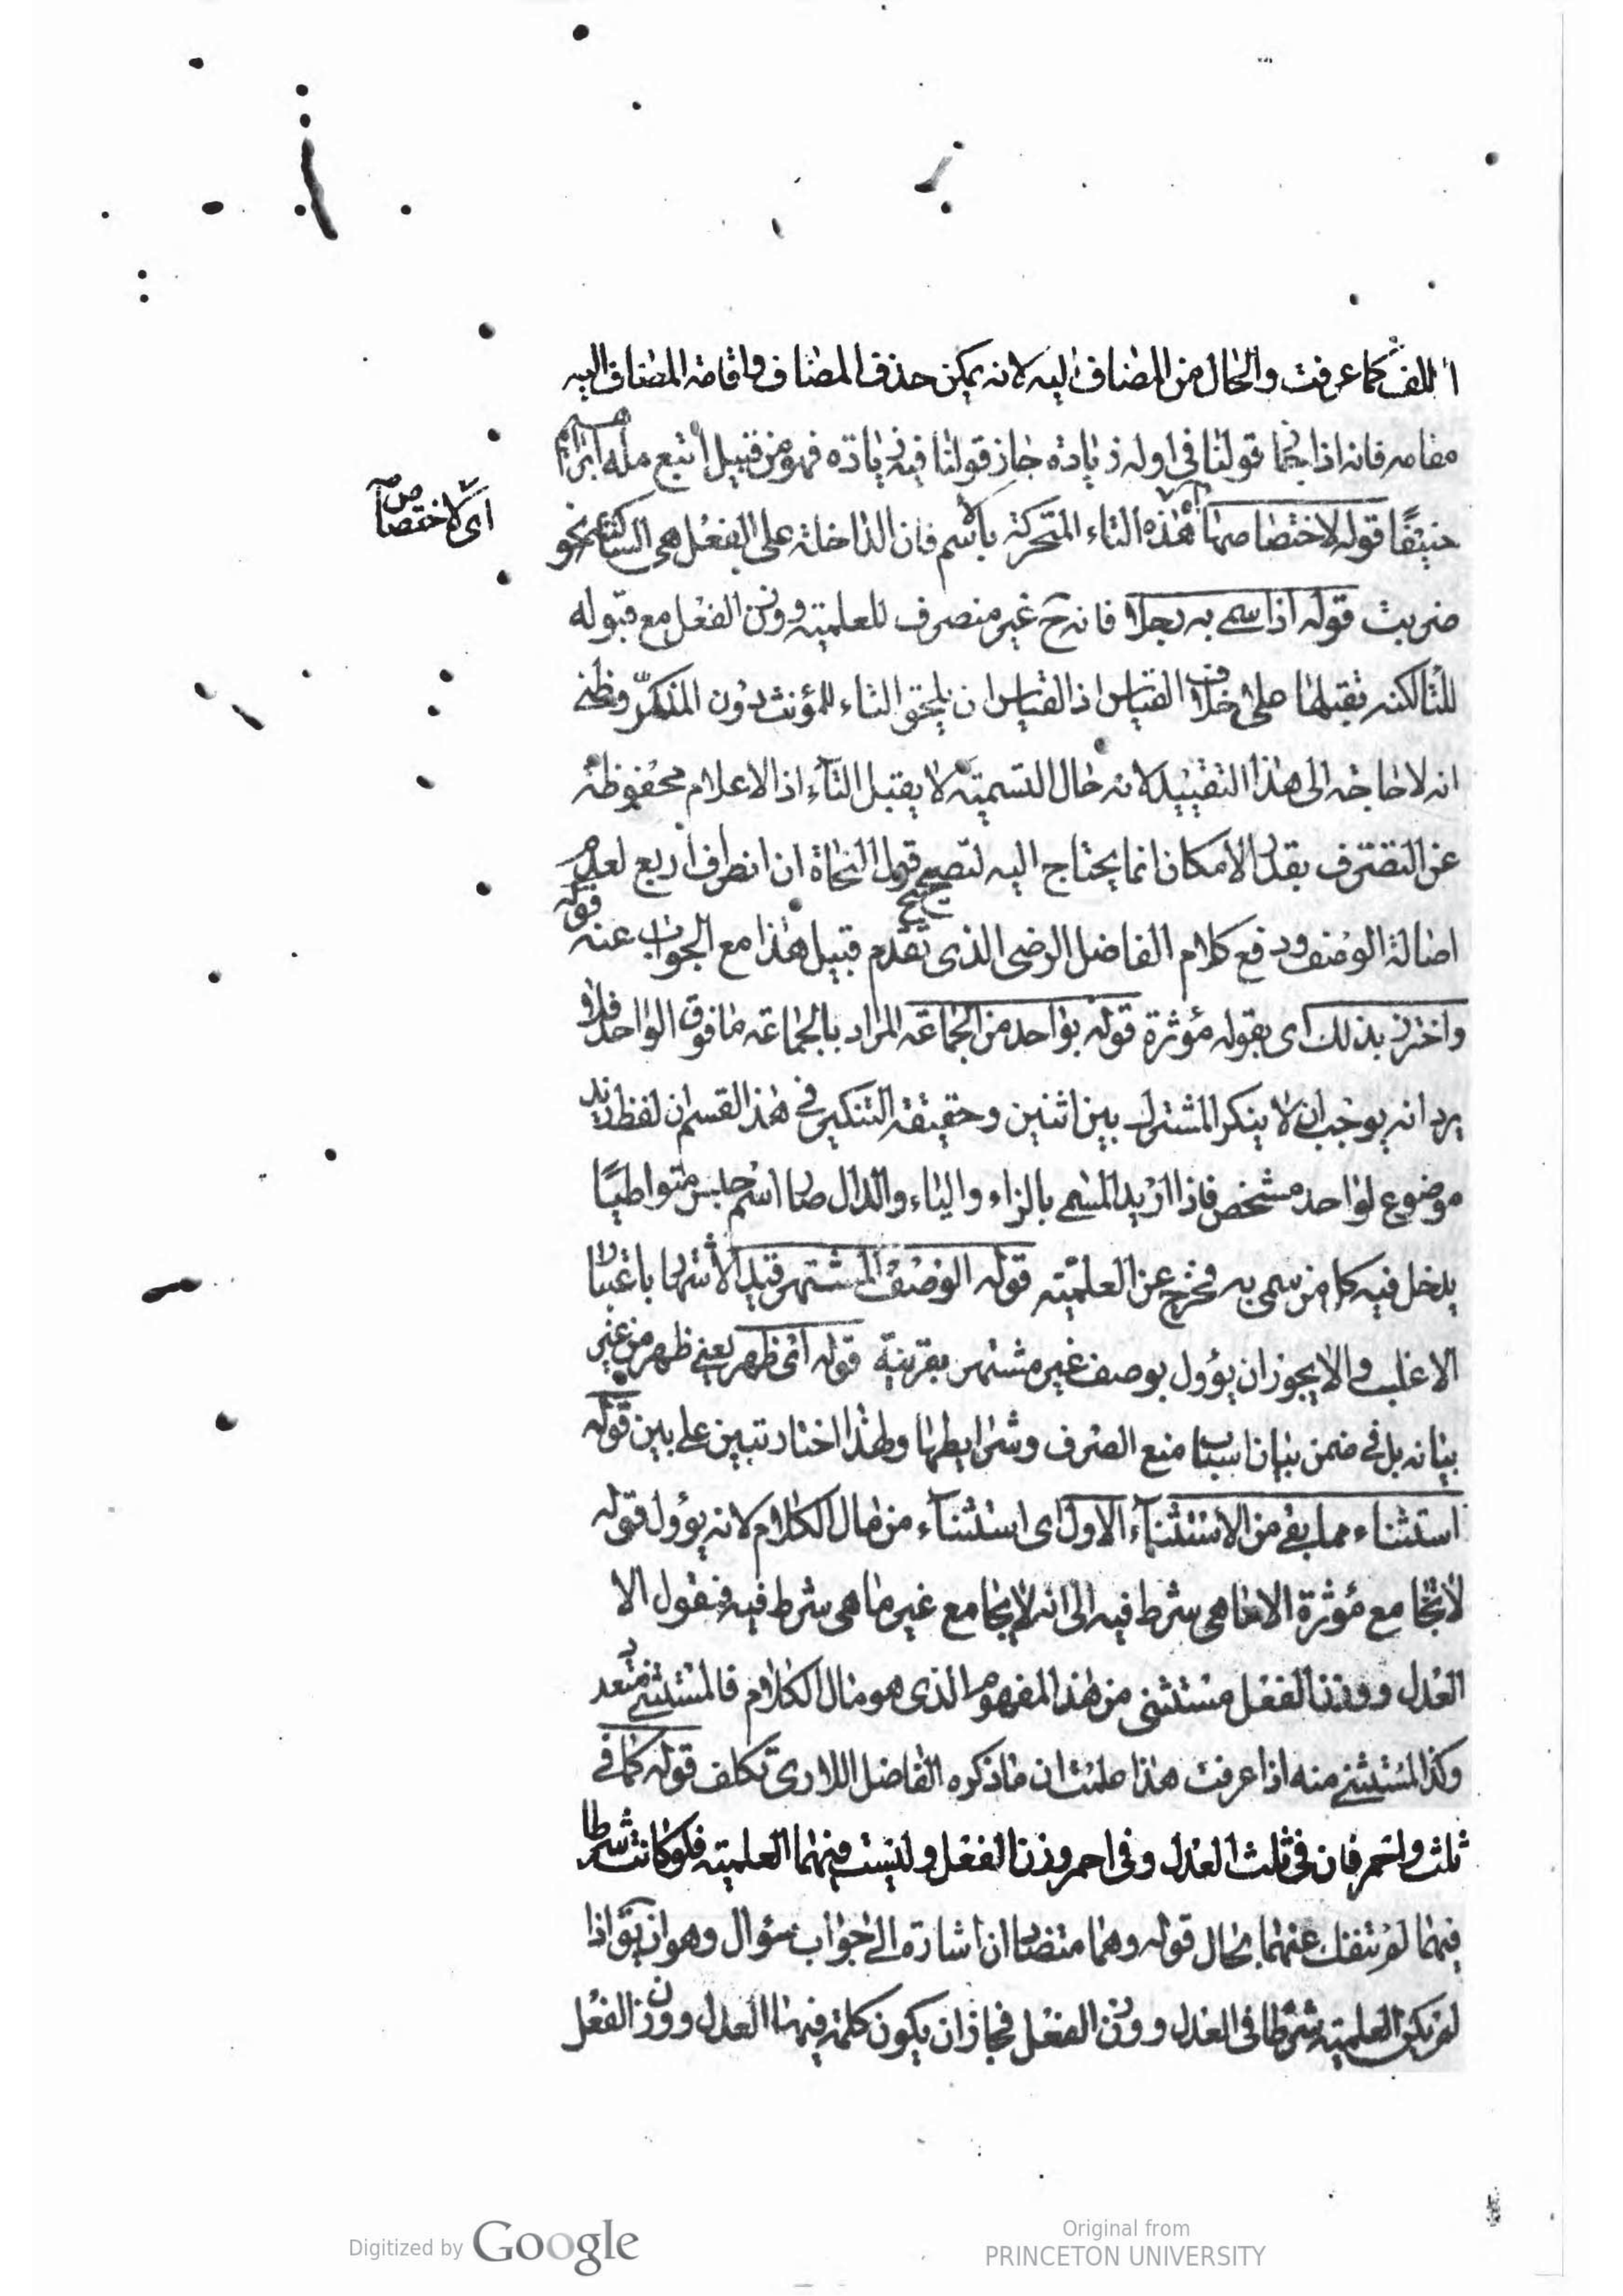 اللف كما عرفت والحال من المضاف اليه لانه يمكن حذف المضاف واقامة المضاف اليه
مقامه فانه اذا قولنا فى اوله زيادة جاز قولنا فيه زيادة فهو من قبيل اتبع ملة ابراهيم
حنيفًا قوله لاختصاصها هذه التاء المتحركة بالاسم فان الداخلة على الفعل هى الساكنة نحو
اى لاختصاص
ضربت قوله اذا سمى به رجلا فانه ح غير منصرف للعلمية ووزن الفعل مع قبوله
للتا لكنه تقبلها على خلاف القياس اذ القياس ان يلحق التاء للمؤنث دون المذكر وظنى
انه لا حاجة الى هذا التقييد لانه حال التسمية لا يقبل التاء اذ الاعلام محفوظة
عن التصرف بقدر الامكان انما يحتاج اليه لتصحيح قول النحاة ان انصراف اربع لعدم
اصالة الوصف ودفع كلام الفاضل الرضى الذى تقدم قبيل هذا مع الجواب عنه قوله
واحترز بذلك اى بقوله مؤثرة قوله بواحد من الجماعة المراد بالجماعة ما فوق الواحد فلا
يرد انه يوجب ان لا ينكر المشترك بين اثنين وحقيقة التنكير فى هذا القسم ان لفظ زيد
موضوع لواحد مشخص فاذا اريد المسمى بالزاء والياء والدال صار اسم جنس متواطيًا
يدخل فيه كل من سمى به فخرج عن العلمية قوله الوصف المشتهر قيد الاشتهار باعتبار
الاغلب والا يجوز ان يؤول بوصف غير مشتهر بقرينة قوله اى ظهر يعنى ظهر من غير
بيانه بل فى ضمن بيان اسباب منع الصرف وشرايطها ولهذا اختار تبين على بين قوله
استثناء مما بقى من الاستثناء الاول اى استثناء من مال الكلام لانه يؤول قوله
لا تجامع مؤثرة الا ما هى شرط فيه الى انه لا يجامع غير ما هى شرط فيه فنقول الا
العدل ووزن الفعل مستثنى من هذا المفهوم الذى هو مال الكلام فالمستثنى متعدد
وكذا المستثنى منه اذا عرفت هذا علمت ان ما ذكره الفاضل اللارى تكلف قوله كما فى
ثلث واحمر فان فى ثلث العدل وفى احمر وزن الفعل وليست فيهما العلمية فلو كانت شرطا
فيهما لم تنفك عنهما بحال قوله وهما متضادان اشارة الى جواب سؤال وهو ان يق اذا
لم يكن العلمية شرطا فى العدل ووزن الفعل فجاز ان يكون كلمة فيها العدل ووزن الفعل
Digitized by Google
Original from
PRINCETON UNIVERSITY